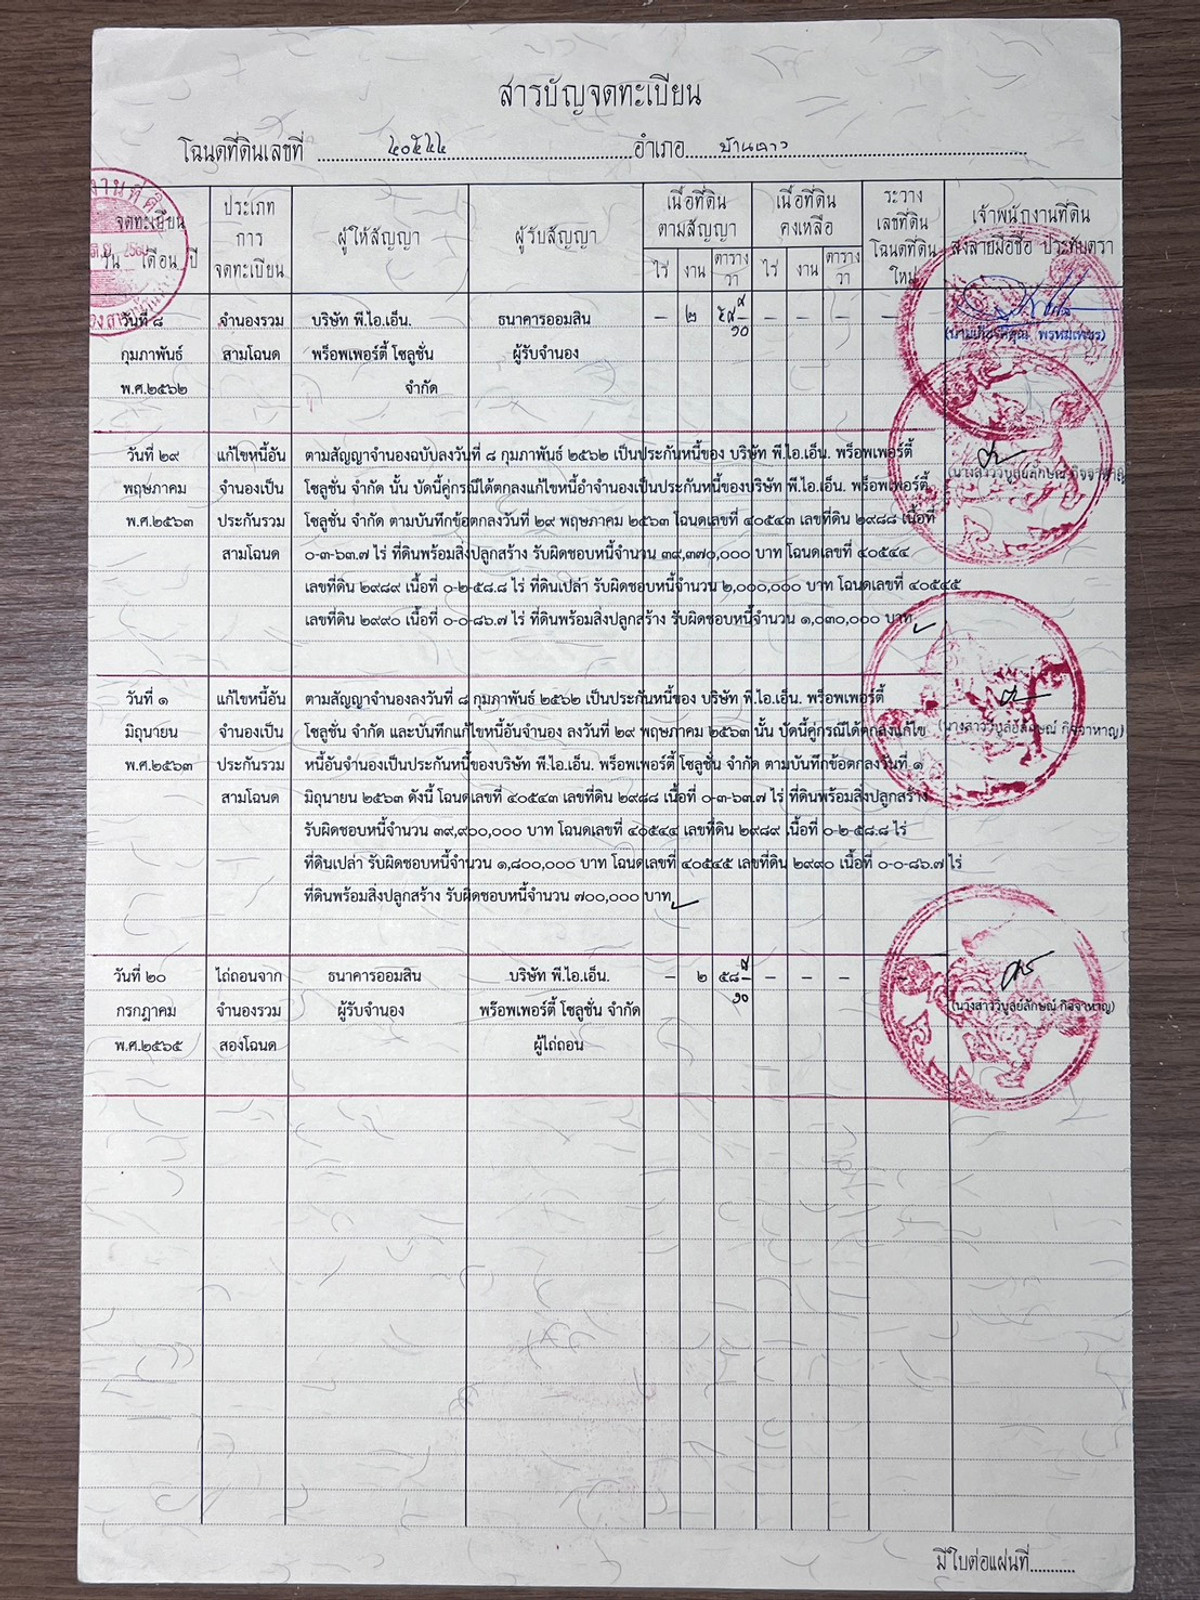 สารบัญจดทะเบียน
โฉนดที่ดินเลขที่ ๔๐๕๔๔ อำเภอ
จดทะเบียน วัน เดือน ปี
ประเภทการจดทะเบียน
ผู้ให้สัญญา
ผู้รับสัญญา
เนื้อที่ดินตามสัญญา
เนื้อที่ดินคงเหลือ
ระวาง เลขที่ดิน โฉนดที่ดินใหม่
เจ้าพนักงานที่ดิน ลงลายมือชื่อ ประทับตรา
ไร่ งาน ตารางวา ไร่ งาน ตารางวา
วันที่ ๘ จำนองรวม บริษัท พี.ไอ.เอ็น. ธนาคารออมสิน – ๒ – – – –
กุมภาพันธ์ สามโฉนด พร็อพเพอร์ตี้ โซลูชั่น ผู้รับจำนอง
พ.ศ.๒๕๖๒ จำกัด
วันที่ ๒๙ แก้ไขหนี้อัน ตามสัญญาจำนองฉบับลงวันที่ ๘ กุมภาพันธ์ ๒๕๖๒ เป็นประกันหนี้ของ บริษัท พี.ไอ.เอ็น. พร็อพเพอร์ตี้
พฤษภาคม จำนองเป็น โซลูชั่น จำกัด นั้น บัดนี้คู่กรณีได้ตกลงแก้ไขหนี้อำจำนองเป็นประกันหนี้ของบริษัท พี.ไอ.เอ็น. พร็อพเพอร์ตี้
พ.ศ.๒๕๖๓ ประกันรวม โซลูชั่น จำกัด ตามบันทึกข้อตกลงวันที่ ๒๙ พฤษภาคม ๒๕๖๓ โฉนดเลขที่ ๔๐๕๔๓ เลขที่ดิน ๒๙๘๘ เนื้อที่
สามโฉนด ๐-๓-๖๓.๗ ไร่ ที่ดินพร้อมสิ่งปลูกสร้าง รับผิดชอบหนี้จำนวน ๓๙,๓๗๐,๐๐๐ บาท โฉนดเลขที่ ๔๐๕๔๔
เลขที่ดิน ๒๙๘๙ เนื้อที่ ๐-๒-๕๘.๘ ไร่ ที่ดินเปล่า รับผิดชอบหนี้จำนวน ๒,๐๐๐,๐๐๐ บาท โฉนดเลขที่ ๔๐๕๔๕
เลขที่ดิน ๒๙๙๐ เนื้อที่ ๐-๐-๘๖.๗ ไร่ ที่ดินพร้อมสิ่งปลูกสร้าง รับผิดชอบหนี้จำนวน ๑,๐๓๐,๐๐๐ บาท
(นางสาววิบูลย์ลักษณ์ กิจจาหาญ)
วันที่ ๑ แก้ไขหนี้อัน ตามสัญญาจำนองลงวันที่ ๘ กุมภาพันธ์ ๒๕๖๒ เป็นประกันหนี้ของ บริษัท พี.ไอ.เอ็น. พร็อพเพอร์ตี้
มิถุนายน จำนองเป็น โซลูชั่น จำกัด และบันทึกแก้ไขหนี้อันจำนอง ลงวันที่ ๒๙ พฤษภาคม ๒๕๖๓ นั้น บัดนี้คู่กรณีได้ตกลงแก้ไข
พ.ศ.๒๕๖๓ ประกันรวม หนี้อันจำนองเป็นประกันหนี้ของบริษัท พี.ไอ.เอ็น. พร็อพเพอร์ตี้ โซลูชั่น จำกัด ตามบันทึกข้อตกลงวันที่ ๑
สามโฉนด มิถุนายน ๒๕๖๓ ดังนี้ โฉนดเลขที่ ๔๐๕๔๓ เลขที่ดิน ๒๙๘๘ เนื้อที่ ๐-๓-๖๓.๗ ไร่ ที่ดินพร้อมสิ่งปลูกสร้าง
รับผิดชอบหนี้จำนวน ๓๙,๙๐๐,๐๐๐ บาท โฉนดเลขที่ ๔๐๕๔๔ เลขที่ดิน ๒๙๘๙ เนื้อที่ ๐-๒-๕๘.๘ ไร่
ที่ดินเปล่า รับผิดชอบหนี้จำนวน ๑,๘๐๐,๐๐๐ บาท โฉนดเลขที่ ๔๐๕๔๕ เลขที่ดิน ๒๙๙๐ เนื้อที่ ๐-๐-๘๖.๗ ไร่
ที่ดินพร้อมสิ่งปลูกสร้าง รับผิดชอบหนี้จำนวน ๗๐๐,๐๐๐ บาท
(นางสาววิบูลย์ลักษณ์ กิจจาหาญ)
วันที่ ๒๐ ไถ่ถอนจาก ธนาคารออมสิน บริษัท พี.ไอ.เอ็น. – ๒ ๕๘ ๙/๑๐ – – – –
กรกฎาคม จำนองรวม ผู้รับจำนอง พร็อพเพอร์ตี้ โซลูชั่น จำกัด (นางสาววิบูลย์ลักษณ์ กิจจาหาญ)
พ.ศ.๒๕๖๕ สองโฉนด ผู้ไถ่ถอน
มีใบต่อแผ่นที่...........